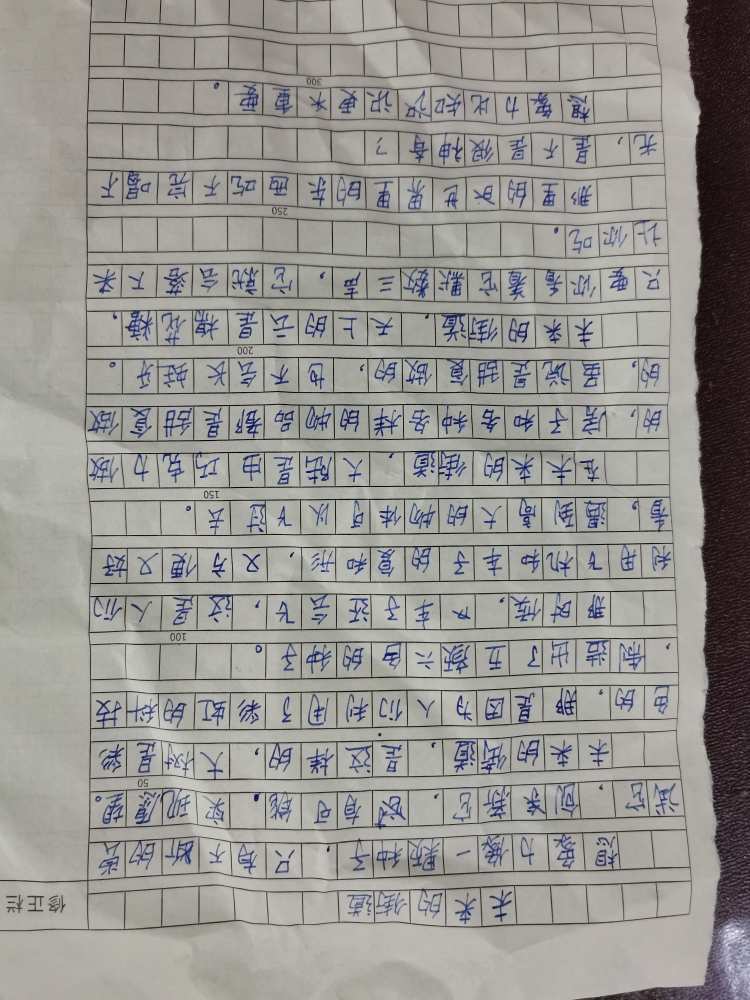 修正栏
未来的街道
想象力像一颗种子，只有不断的尝
试它，创亲新它，才有可能，实现愿望。
未来的街道，是这样的，大树是彩
色的，那是因为人们利用了彩虹的科技
，制造出了五颜六色的种子。
那时候，人车子还会飞，这是人们
利用飞机和车子的复和形，又方便又好
看，遇到高大的物体可以飞过去。
在未来的街道，大陆是由巧克力做
的，房子和各种各样的物品都是甜食做
的，虽说是甜食做的，也不会长蛀牙。
未来的街道，天上的云是棉花糖，
只要你看着它默数三声，它就会落下来
让你吃。
那里的水世界里的东西吃不完喝不
光，是不是很神奇？
想象力比知识更未重要。
50
100
150
200
250
300